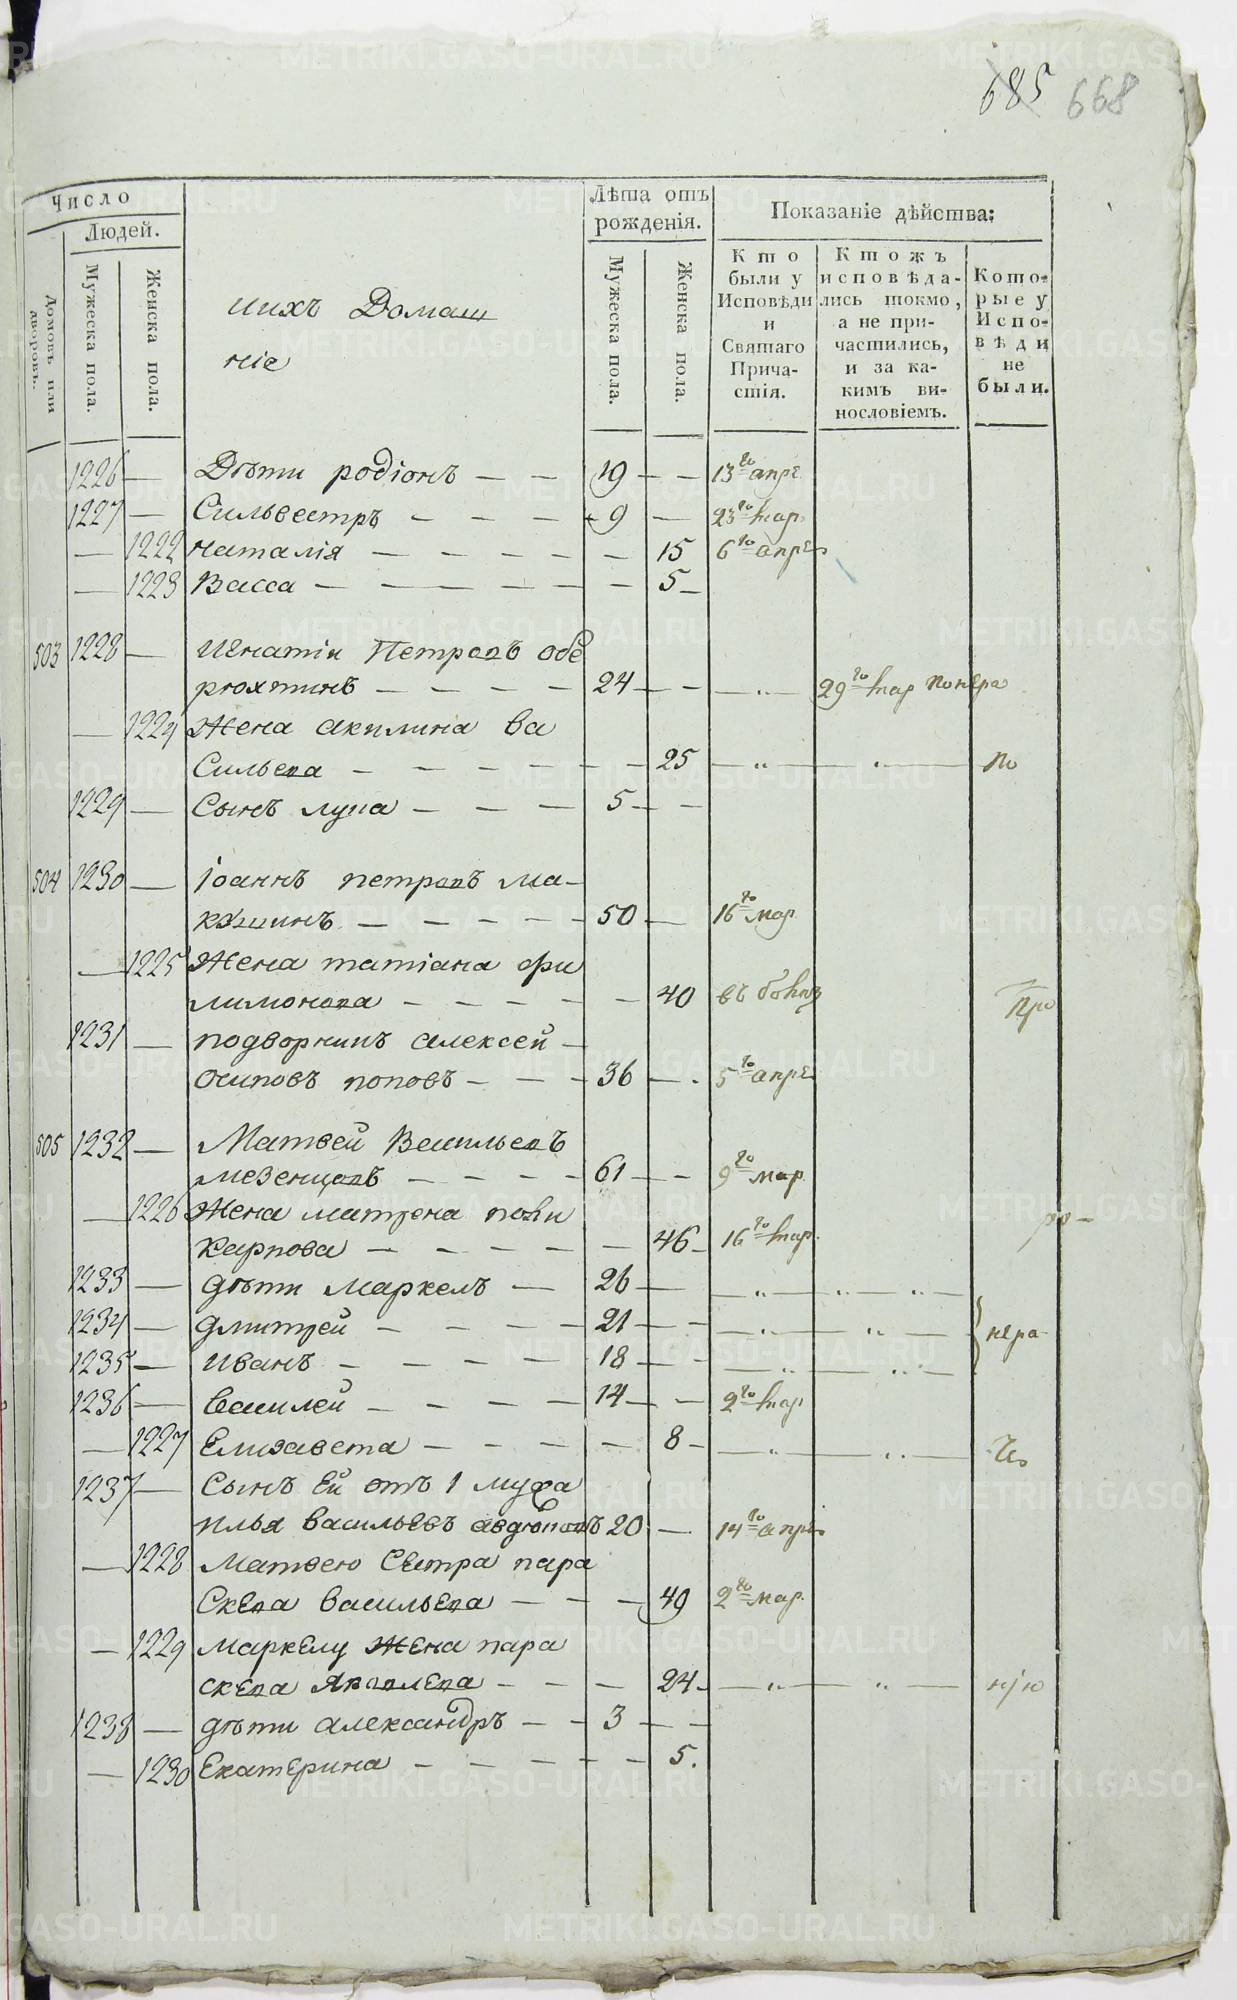 685 668
Число
Людей.
Домовъ или дворовъ.
Мужеска пола.
Женска пола.
ихъ Домаш
ніе
Лѣта отъ рожденія.
Мужеска пола.
Женска пола.
Показаніе дѣйства:
Кто были у Исповѣди и Святаго Причастія.
Ктожъ исповѣдались токмо, а не причастились, и за какимъ винословіемъ.
Которые у Исповѣди не были.
1226 — Дѣти родіонъ — — 19 — — 13го апре
1227 — Сильвестръ — — — — 9 — 23го мар
— 1222 наталія — — — — — 15 6го апре
— 1223 Васса — — — — — 5 —
503 1228 — Игнатіи Петровъ обе
рюхтинъ — — — — 24 — — — „ — 29го мар по нера
— 1224 Жена акилина ва
Сильева — — — — — — 25 — „ — „ — по
1229 — Сынъ лупа — — — 5 — —
504 1230 — іоаннъ петровъ ма-
кушинъ — — — — 50 — 16го мар
— 1225 Жена татіана фи
лимонова — — — — — 40
1231 — подворникъ алексей —
Осиповъ поповъ — — — 36 — 5го апре
505 1232 — Матвей Васильевъ
мезенцовъ — — — — 61 — — 9го мар
— 1226 Жена матрена поли
карпова — — — — — 46 — 16го мар
1233 — дѣти Маркелъ — 26 — — „ — „ — „ —
1234 — дмитрей — — — — 21 — — — „ — „ — нера
1235 — иванъ — — — — 18 — — — „ — „ —
1236 — василей — — — — 14 — — 2го мар
— 1227 Елизавета — — — — — 8 — — „ — „ —
1237 — Сынъ Ей отъ 1 мужа
илья васильевъ авдюковъ 20 — 14го апре
— 1228 Матвею Сестра пара
Скева васильева — — — 49 2го мар
— 1229 маркелу Жена пара
скева Яковлева — — — 24 — — „ — „ —
1238 — дѣти александръ — — 3 — —
— 1230 Екатерина — — — — — 5.
METRIKI.GASO-URAL.RU